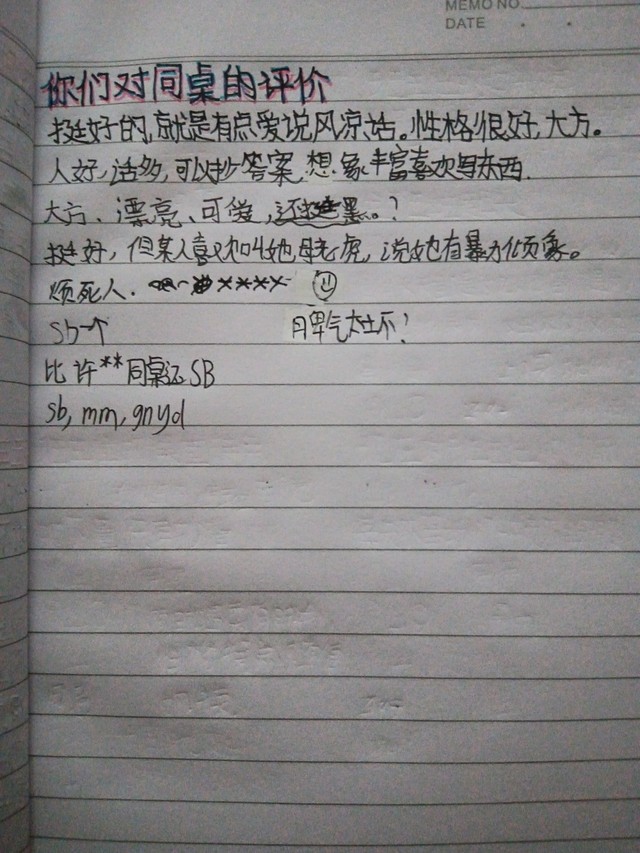 MEMO NO.
DATE . .
你们对同桌的评价
挺好的,就是有点爱说风凉话。性格很好,大方。
人好,话多,可以抄答案,想象丰富喜欢写东西.
大方、漂亮、可爱,还挺黑。?
挺好,但某人喜欢叫她母老虎,说她有暴力倾象。
烦死人. xxxx
Sb一个 脾气太坏!
比许**同桌还SB
sb, mm, gnyd